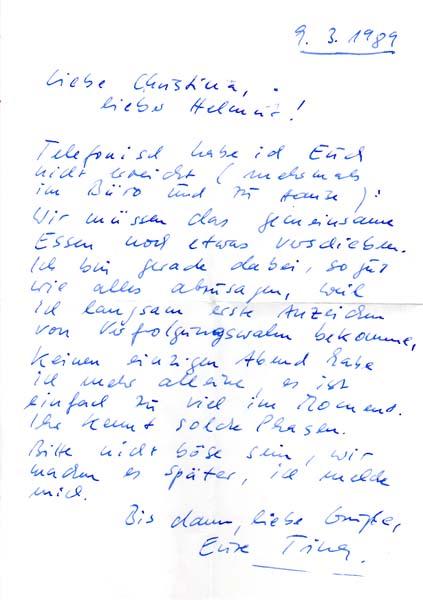 9. 3. 1989
Liebe Christina,
lieber Helmut!
Telefonisch habe ich Euch
nicht erreicht (mehrmals
im Büro und zu Hause):
Wir müssen das gemeinsame
Essen noch etwas verschieben.
Ich bin gerade dabei, so gut
wie alles abzusagen, weil
ich langsam erste Anzeichen
von Verfolgungswahn bekomme,
keinen einzigen Abend habe
ich mehr alleine, es ist
einfach zu viel im Moment.
Ihr kennt solche Phasen.
Bitte nicht böse sein, wir
machen es später, ich melde
mich.
Bis dann, liebe Grüße,
Eure Tina